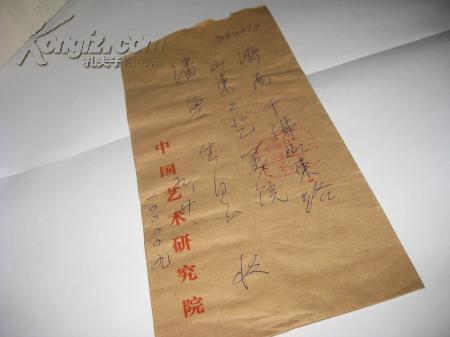 Kongfz.com
孔夫子旧书网
济南千佛山东路
山东工艺美院
潘鲁生 收
中国艺术研究院
一〇〇〇〇九